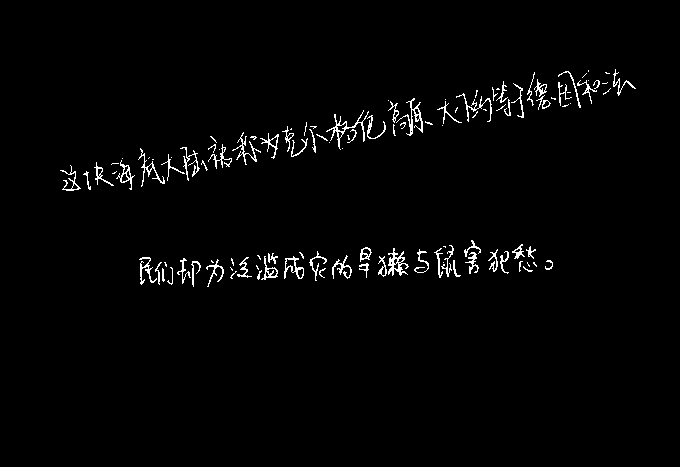 这块海底大陆被称为克尔格伦高原大小约等于德国和法
民们却为泛滥成灾的旱獭与鼠害犯愁。